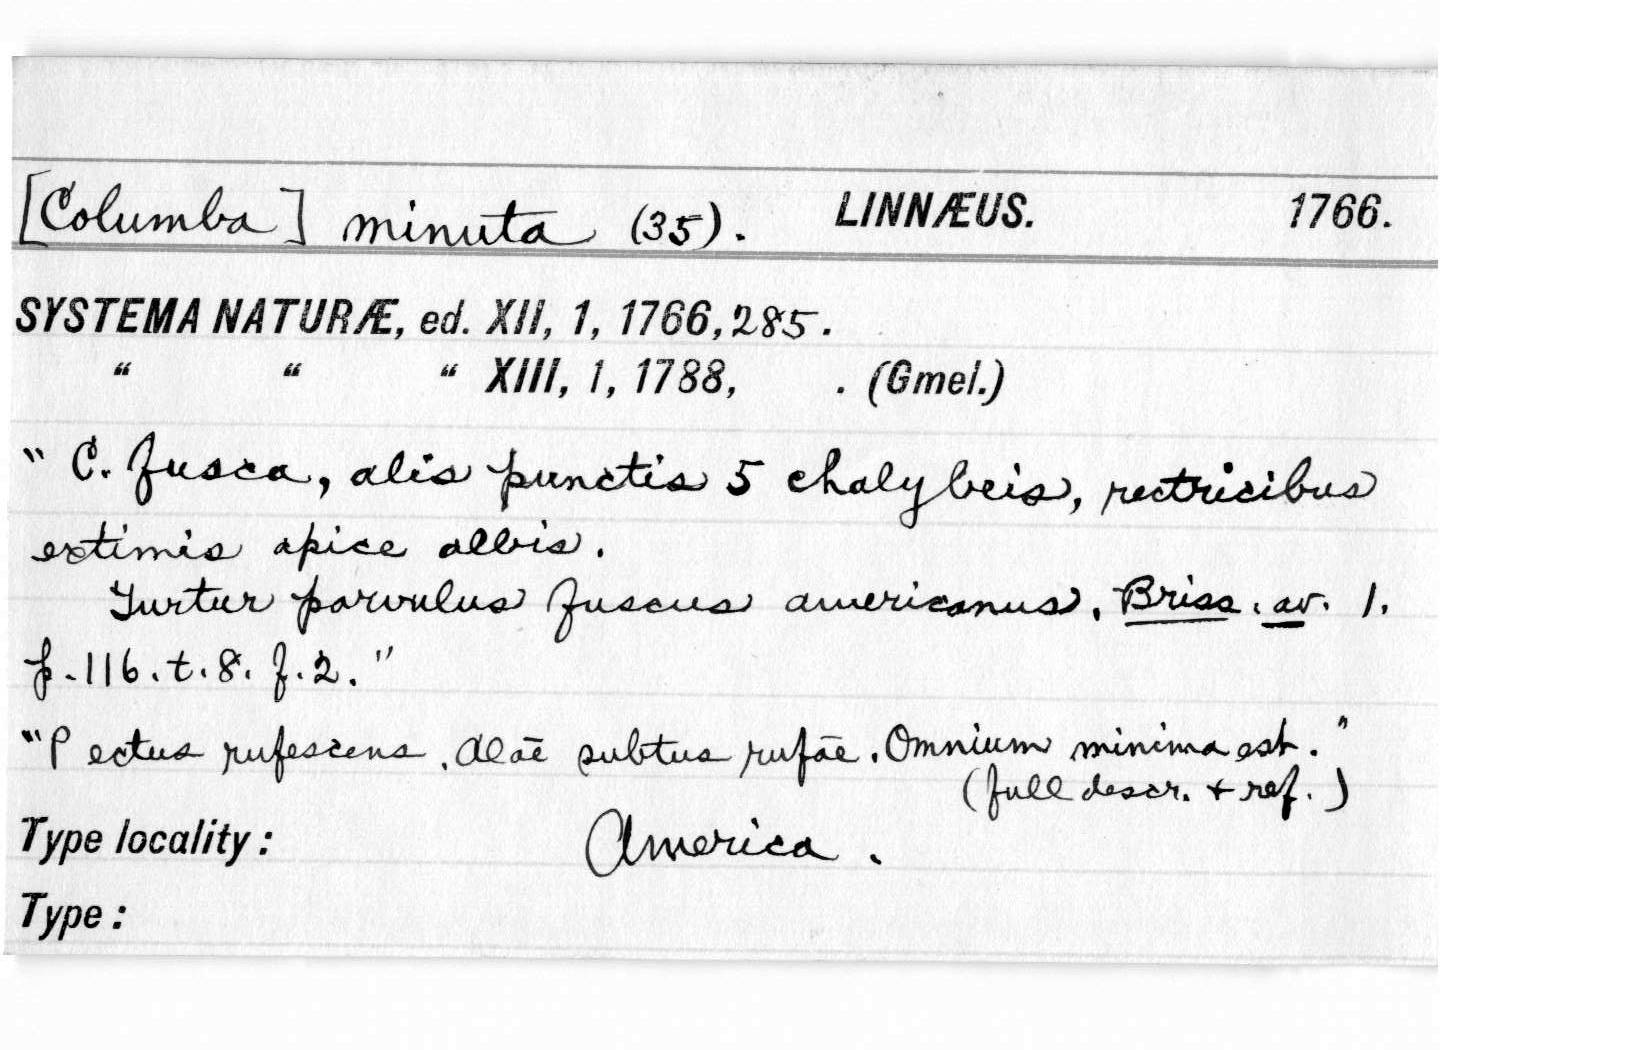 [Columba] minuta (35). LINNÆUS. 1766.
SYSTEMA NATURÆ, ed. XII, 1, 1766, 285.
“ “ “ XIII, 1, 1788, . (Gmel.)
" C. fusca, alis punctis 5 chalybeis, rectricibus
extimis apice albis.
Turtur parvulus fuscus americanus. Briss. av. 1.
p. 116. t. 8. f. 2."
"Pectus rufescens. Alae subtus rufae. Omnium minima est."
(full descr. + ref.)
Type locality: America.
Type: